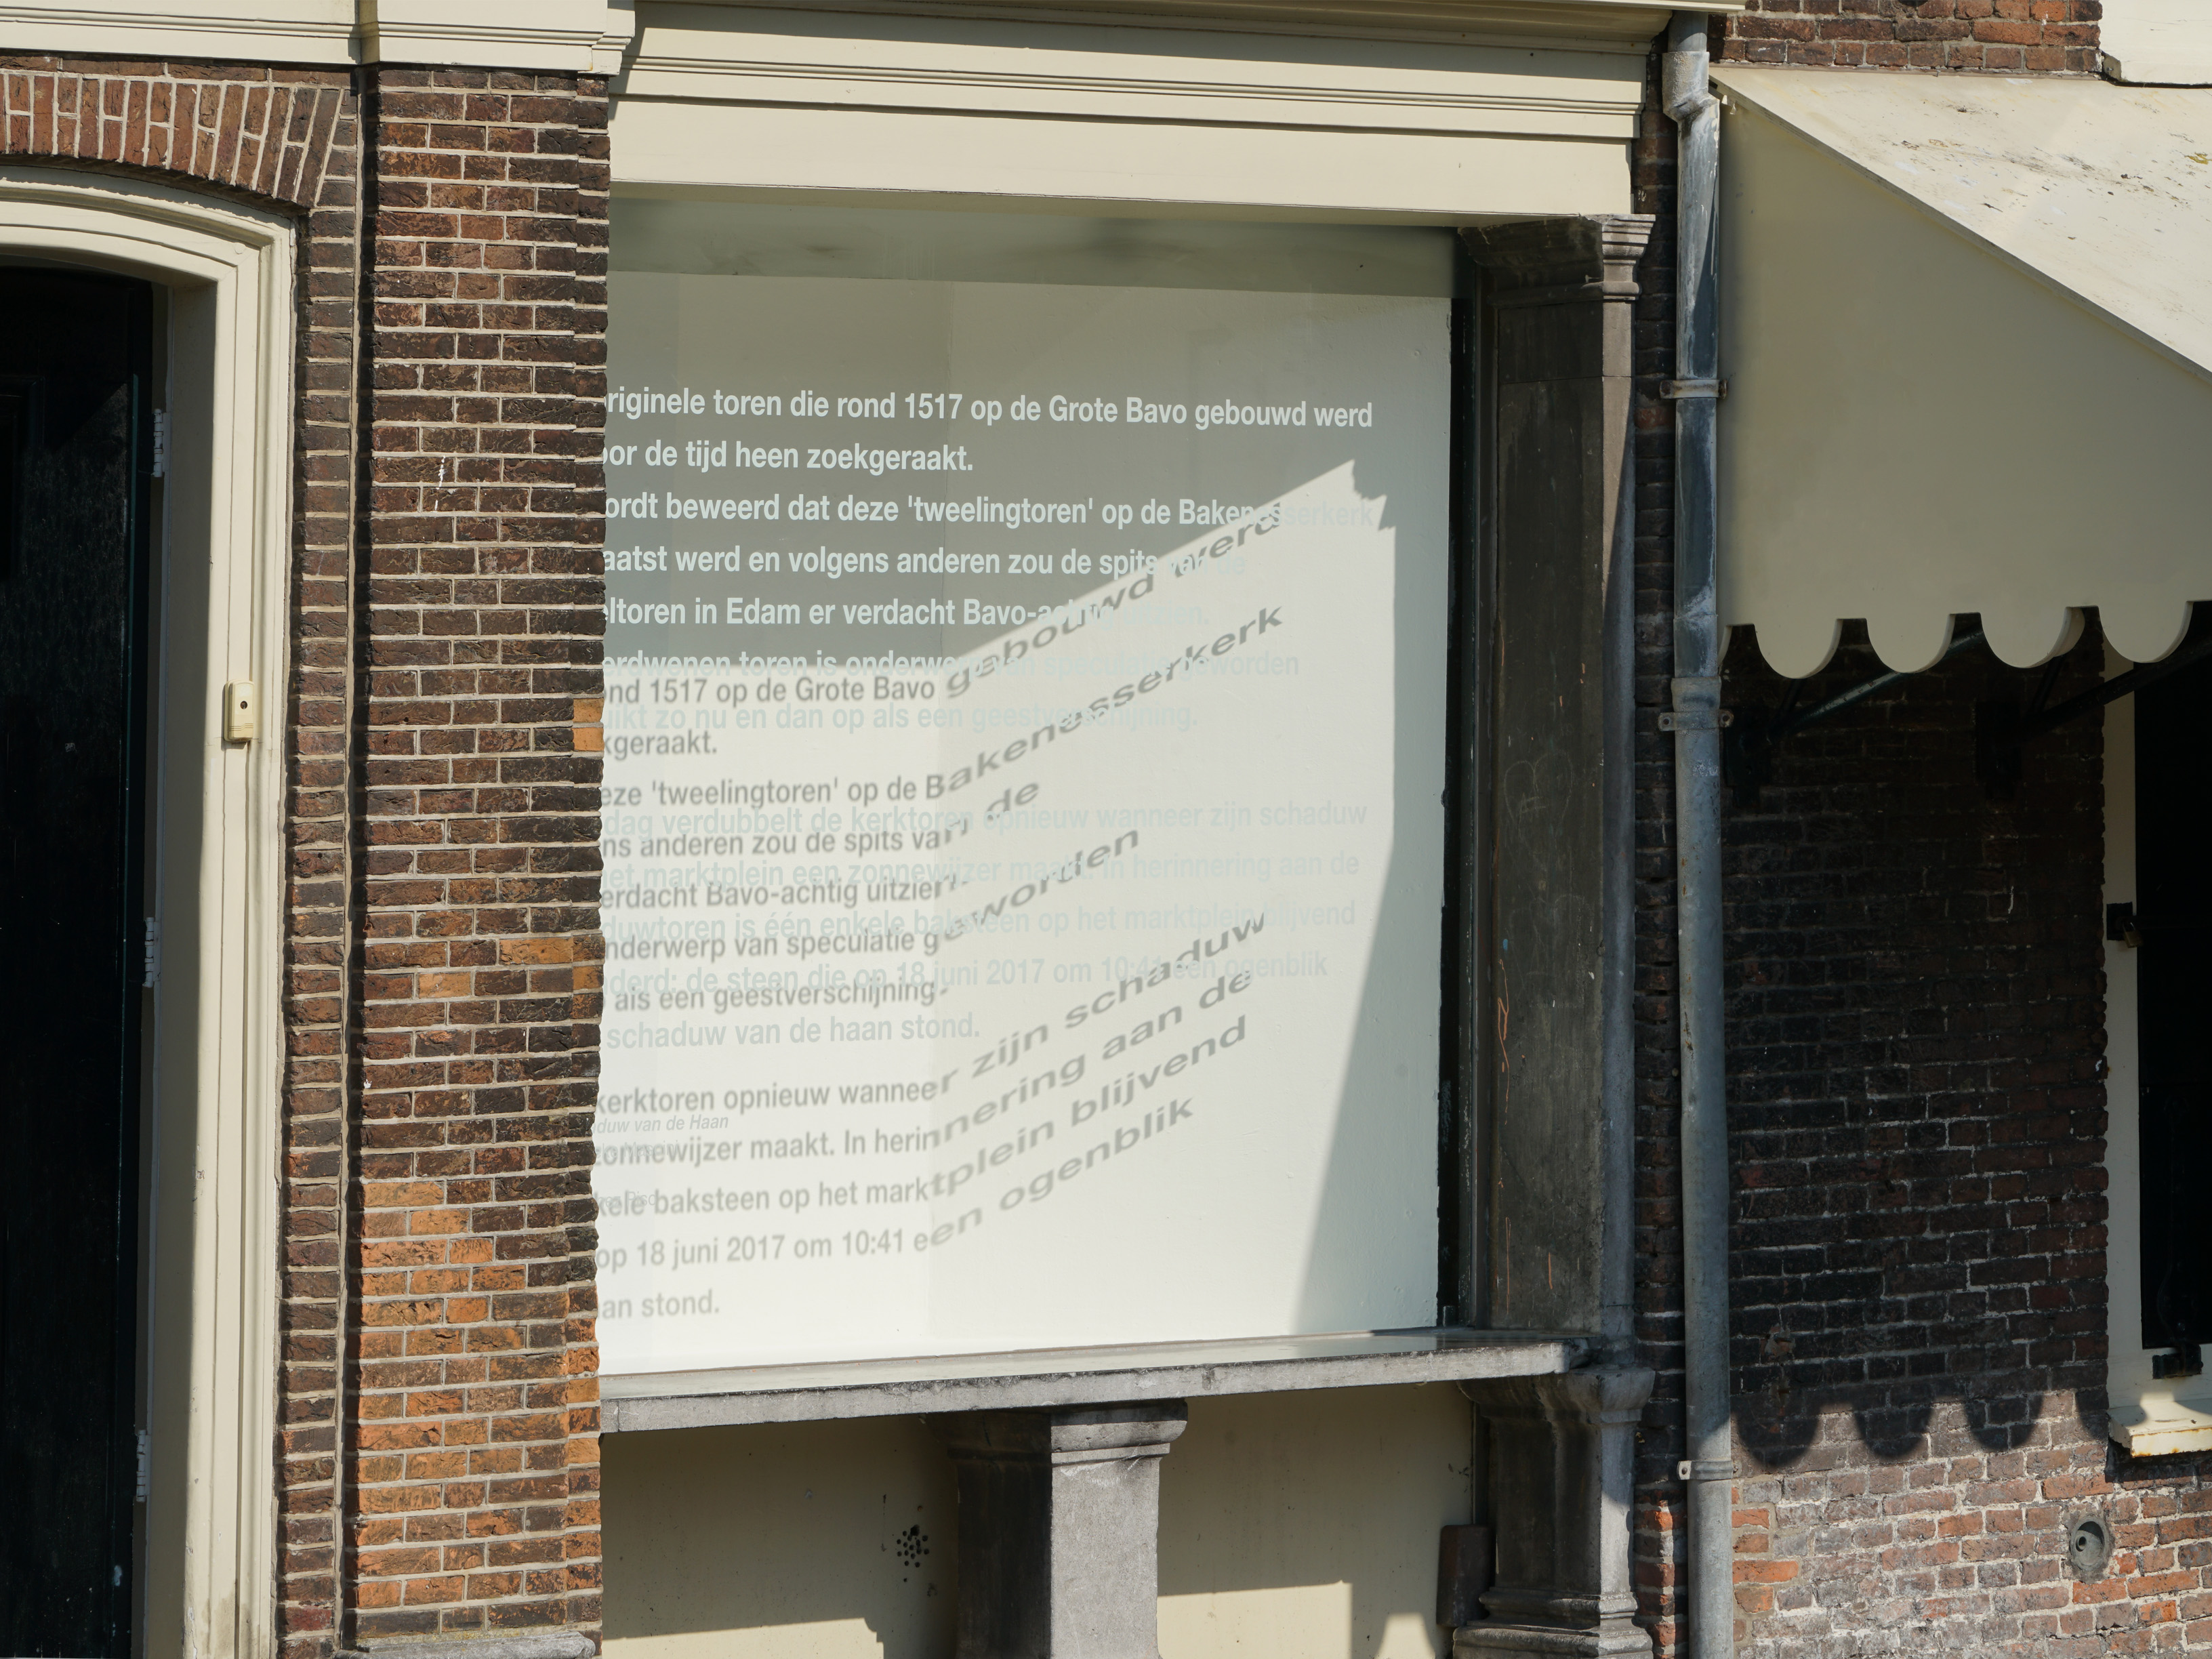 riginele toren die rond 1517 op de Grote Bavo gebouwd werd
oor de tijd heen zoekgeraakt.
ordt beweerd dat deze 'tweelingtoren' op de Bakenesserkerk
aatst werd en volgens anderen zou de spits van de
eltoren in Edam er verdacht Bavo-achtig uitzien.
erdwenen toren is onderwerp van speculatie geworden
uikt zo nu en dan op als een geestverschijning.
dag verdubbelt de kerktoren opnieuw wanneer zijn schaduw
et marktplein een zonnewijzer maakt. In herinnering aan de
duwtoren is één enkele baksteen op het marktplein blijvend
derd: de steen die op 18 juni 2017 om 10:41 een ogenblik
schaduw van de haan stond.
duw van de Haan
ond 1517 op de Grote Bavo gebouwd werd
kgeraakt.
eze 'tweelingtoren' op de Bakenesserkerk
ns anderen zou de spits van de
erdacht Bavo-achtig uitzien.
nderwerp van speculatie geworden
als een geestverschijning.
kerktoren opnieuw wanneer zijn schaduw
zonnewijzer maakt. In herinnering aan de
kele baksteen op het marktplein blijvend
op 18 juni 2017 om 10:41 een ogenblik
an stond.